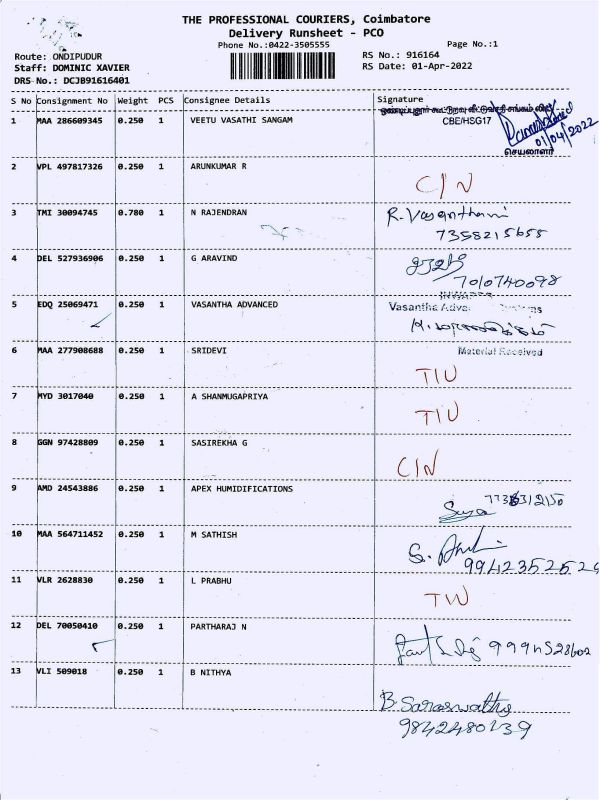 THE PROFESSIONAL COURIERS, Coimbatore
Delivery Runsheet - PCO
Phone No.:0422-3505555
Page No.:1
Route: ONDIPUDUR
Staff: DOMINIC XAVIER
DRS No.: DCJB91616401
RS No.: 916164
RS Date: 01-Apr-2022
S No Consignment No Weight PCS Consignee Details Signature
1 MAA 286609345 0.250 1 VEETU VASATHI SANGAM
CBE/HSG17
01/04/2022
செயலாளர்
2 VPL 497817326 0.250 1 ARUNKUMAR R
C/N
3 TMI 30094745 0.780 1 N RAJENDRAN R. Vasanthami
7358215655
4 DEL 527936906 0.250 1 G ARAVIND
7010740098
5 EDQ 25069471 0.250 1 VASANTHA ADVANCED
INWARDS
Vasantha Adva Systems
6 MAA 277908688 0.250 1 SRIDEVI Material Received
TIU
7 MYD 3017040 0.250 1 A SHANMUGAPRIYA
TIU
8 GGN 97428809 0.250 1 SASIREKHA G
C/N
9 AMD 24543886 0.250 1 APEX HUMIDIFICATIONS
Surya
10 MAA 564711452 0.250 1 M SATHISH
11 VLR 2628830 0.250 1 L PRABHU
12 DEL 70050410 0.250 1 PARTHARAJ N
13 VLI 509018 0.250 1 B NITHYA
B. Saraswathy
9842480139